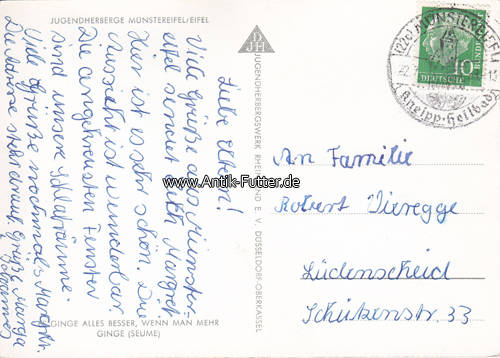 JUGENDHERBERGE MÜNSTEREIFEL/EIFEL
Liebe Eltern!
Viele Grüße aus Münster-
eifel sendet euch Margret.
Hier ist es sehr schön. Die
Aussicht ist wunderbar.
Die angekreuzten Fenster
sind unsere Schlafräume.
Viele Grüße nochmals Margret.
Die Adresse steht drauf. Grüße Marga
GINGE ALLES BESSER, WENN MAN MEHR
GINGE (SEUME)
DJH
JUGENDHERBERGSWERK RHEINLAND E. V. DÜSSELDORF-OBERKASSEL
MÜNSTEREIFEL
Kneipp-Heilbad
10
DEUTSCHE
BUNDESPOST
www.Antik-Futter.de
An Familie
Robert Vieregge
Lüdenscheid
Schützenstr. 33